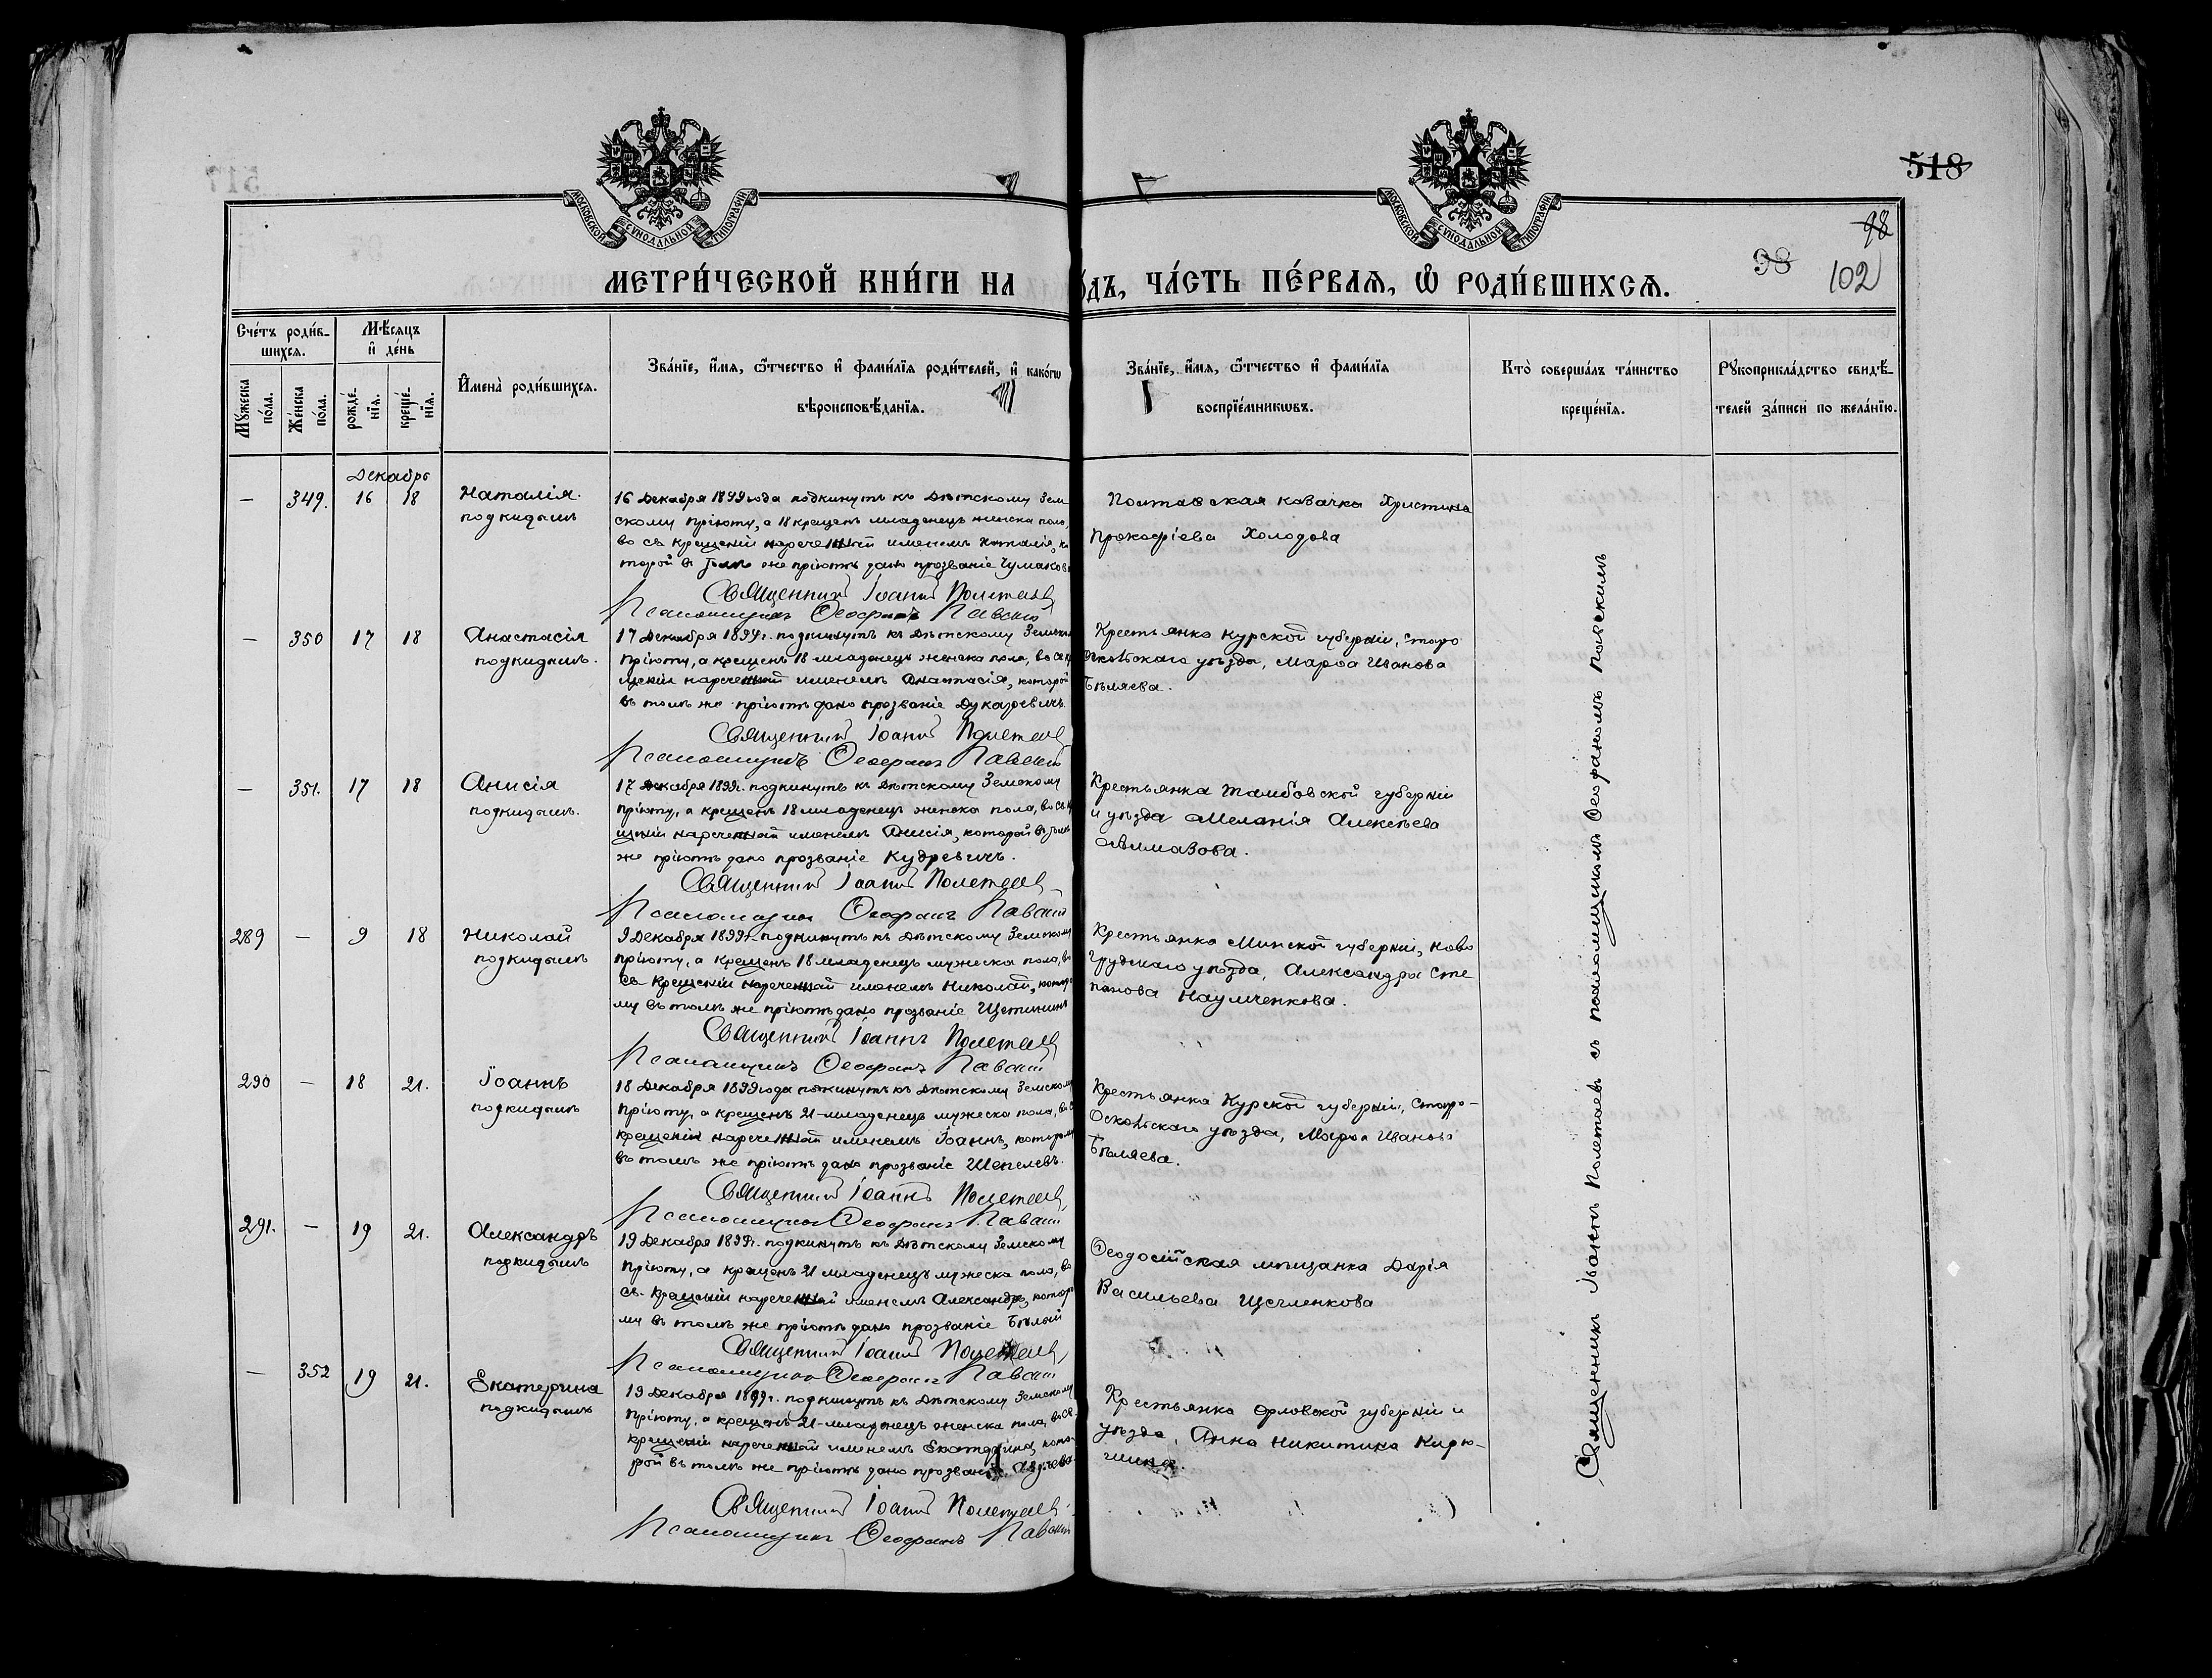 518
98
98
102
МОСКОВСКОЙ СѴНОДАЛЬНОЙ ТИПОГРАФІИ
МОСКОВСКОЙ СѴНОДАЛЬНОЙ ТИПОГРАФІИ
МЕТРИ́ЧЕСКОЙ КНИ́ГИ НА
ОДЪ, ЧА́СТЬ ПЕ́РВАѦ, Ѡ РОДИ́ВШИХСѦ.
Сче́тъ роди́в-
шихсѧ.
Мꙋ́жеска
по́ла.
Же́нска
по́ла.
Мѣ́сѧцъ
и҆ де́нь
рожде́-
нїѧ.
креще́-
нїѧ.
И҆мена̀ роди́вшихсѧ.
Зва́нїе, и҆́мѧ, ѻ҆́тчество и҆ фами́лїѧ роди́телей, и҆ како́гѡ
вѣроисповѣ́данїѧ.
Зва́нїе, и҆́мѧ, ѻ҆́тчество и҆ фами́лїѧ
воспрїе́мникѡвъ.
Кто̀ соверша́лъ та́инство
креще́нїѧ.
Рꙋкоприкла́дство свидѣ́-
телей за́писи по жела́нїю.
Декабрь
— 349. 16 18
Наталія.
подкидышъ
16 Декабря 1899 года подкинутъ къ Дѣтскому Зем
скому пріюту, а 18 крещенъ младенецъ женска пола,
во св. крещеніи нареченный именемъ Наталія, ко
торой въ томъ же пріютѣ дано прозваніе Чумакова
Священникъ Іоаннъ Полетаевъ
Псаломщикъ Ѳеофанъ Павскій
Полтавская козачка Христина
Прокофіева Холодова
— 350 17 18
Анастасія
подкидышъ.
17 Декабря 1899 г. подкинутъ къ Дѣтскому Земском
пріюту, а крещенъ 18 младенецъ женска пола, во св кр
щеніи нареченный именемъ Анастасія, которой
въ томъ же пріютѣ дано прозваніе Дукаревичъ.
Священникъ Іоаннъ Полетаевъ
Псаломщикъ Ѳеофанъ Павскій
Крестьянка Курской губерніи, Старо
оскольскаго уѣзда, Марѳа Иванова
Бѣляева.
— 351. 17 18
Анисія
подкидышъ.
17 Декабря 1899 г. подкинутъ къ Дѣтскому Земскому
пріюту, а крещенъ 18 младенецъ женска пола, во св. кр
щеніи нареченный именемъ Анисія, которой въ томъ
же пріютѣ дано прозваніе Кудревичъ.
Священникъ Іоаннъ Полетаевъ
Псаломщикъ Ѳеофанъ Павскій
Крестьянка Тамбовской губерніи
и уѣзда Меланія Алексѣева
Алмазова.
289 — 9 18
Николай
подкидышъ
9 Декабря 1899 г. подкинутъ къ Дѣтскому Земскому
пріюту, а крещенъ 18 младенецъ мужеска пола, во
св. крещеніи нареченный именемъ Николай, которо
му въ томъ же пріютѣ дано прозваніе Щетининъ
Священникъ Іоаннъ Полетаевъ
Псаломщикъ Ѳеофанъ Павскій
Крестьянка Минской губерніи, Ново
грудскаго уѣзда, Александра Сте
панова Наумченкова.
290 — 18 21.
Іоаннъ
подкидышъ
18 Декабря 1899 года подкинутъ къ Дѣтскому Земскому
пріюту, а крещенъ 21-младенецъ мужеска пола, во с
крещеніи нареченный именемъ Іоаннъ, котором
въ томъ же пріютѣ дано прозваніе Шепелевъ.
Священникъ Іоаннъ Полетаевъ
Псаломщикъ Ѳеофанъ Павскій
Крестьянка Курской губерніи, Старо-
Оскольскаго уѣзда, Марѳа Иванова
Бѣляева.
291. — 19 21.
Александръ
подкидышъ
19 Декабря 1899 г. подкинутъ къ Дѣтскому Земскому
пріюту, а крещенъ 21 младенецъ мужеска пола, во
св. крещеніи нареченный именемъ Александръ, которо
му въ томъ же пріютѣ дано прозваніе Бѣлый
Священникъ Іоаннъ Полетаевъ
Псаломщикъ Ѳеофанъ Павскій
Ѳеодосійская мѣщанка Дарія
Васильева Щегленкова
— 352 19 21.
Екатерина
подкидышъ
19 Декабря 1899 г. подкинутъ къ Дѣтскому Земскому
пріюту, а крещенъ 21-младенецъ женска пола, во св.
крещеніи нареченный именемъ Екатерина, кото-
рой въ томъ же пріютѣ дано прозваніе
Священникъ Іоаннъ Полетаевъ
Псаломщикъ Ѳеофанъ Павскій
Крестьянка Орловской губерніи и
уѣзда, Анна Никитина Кирю-
шина.
Священникъ Іоаннъ Полетаевъ съ псаломщикомъ Ѳеофаномъ Павскимъ